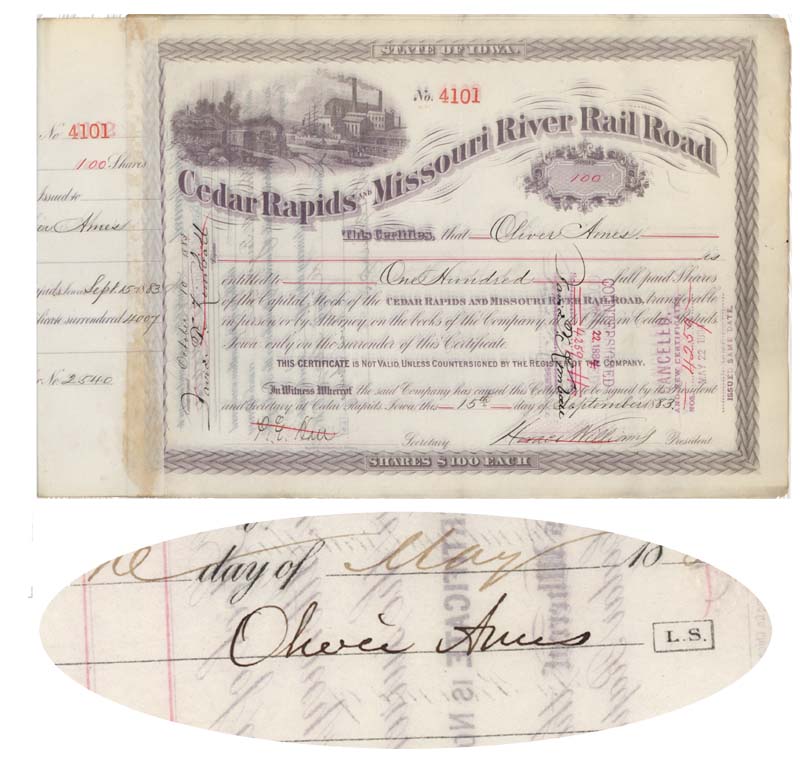 STATE OF IOWA.
No. 4101
Cedar Rapids AND Missouri River Rail Road
100
This Certifies, that Oliver Ames.
is
entitled to One Hundred full paid Shares
of the Capital Stock of the CEDAR RAPIDS AND MISSOURI RIVER RAIL ROAD, transferable
in person or by Attorney on the books of the Company at Office in Cedar Rapids
Iowa only on the surrender of this Certificate
THIS CERTIFICATE IS NOT VALID, UNLESS COUNTERSIGNED BY THE REGISTRAR OF THE COMPANY.
In Witness Whereof the said Company has caused this Certificate to be signed by its President
and Secretary at Cedar Rapids, Iowa, this 15th day of September 1883
Secretary Horace Williams President
SHARES $100 EACH
No 4101
100 Shares
Issued to
Ames
Sept 15 1883
surrendered 4007
No 2540
COUNTERSIGNED
22 1884
CANCELLED,
MAY 22
AND NEW CERTIFICATE
NOS.
ISSUED SAME DATE.
day of May 18
Oliver Ames L.S.